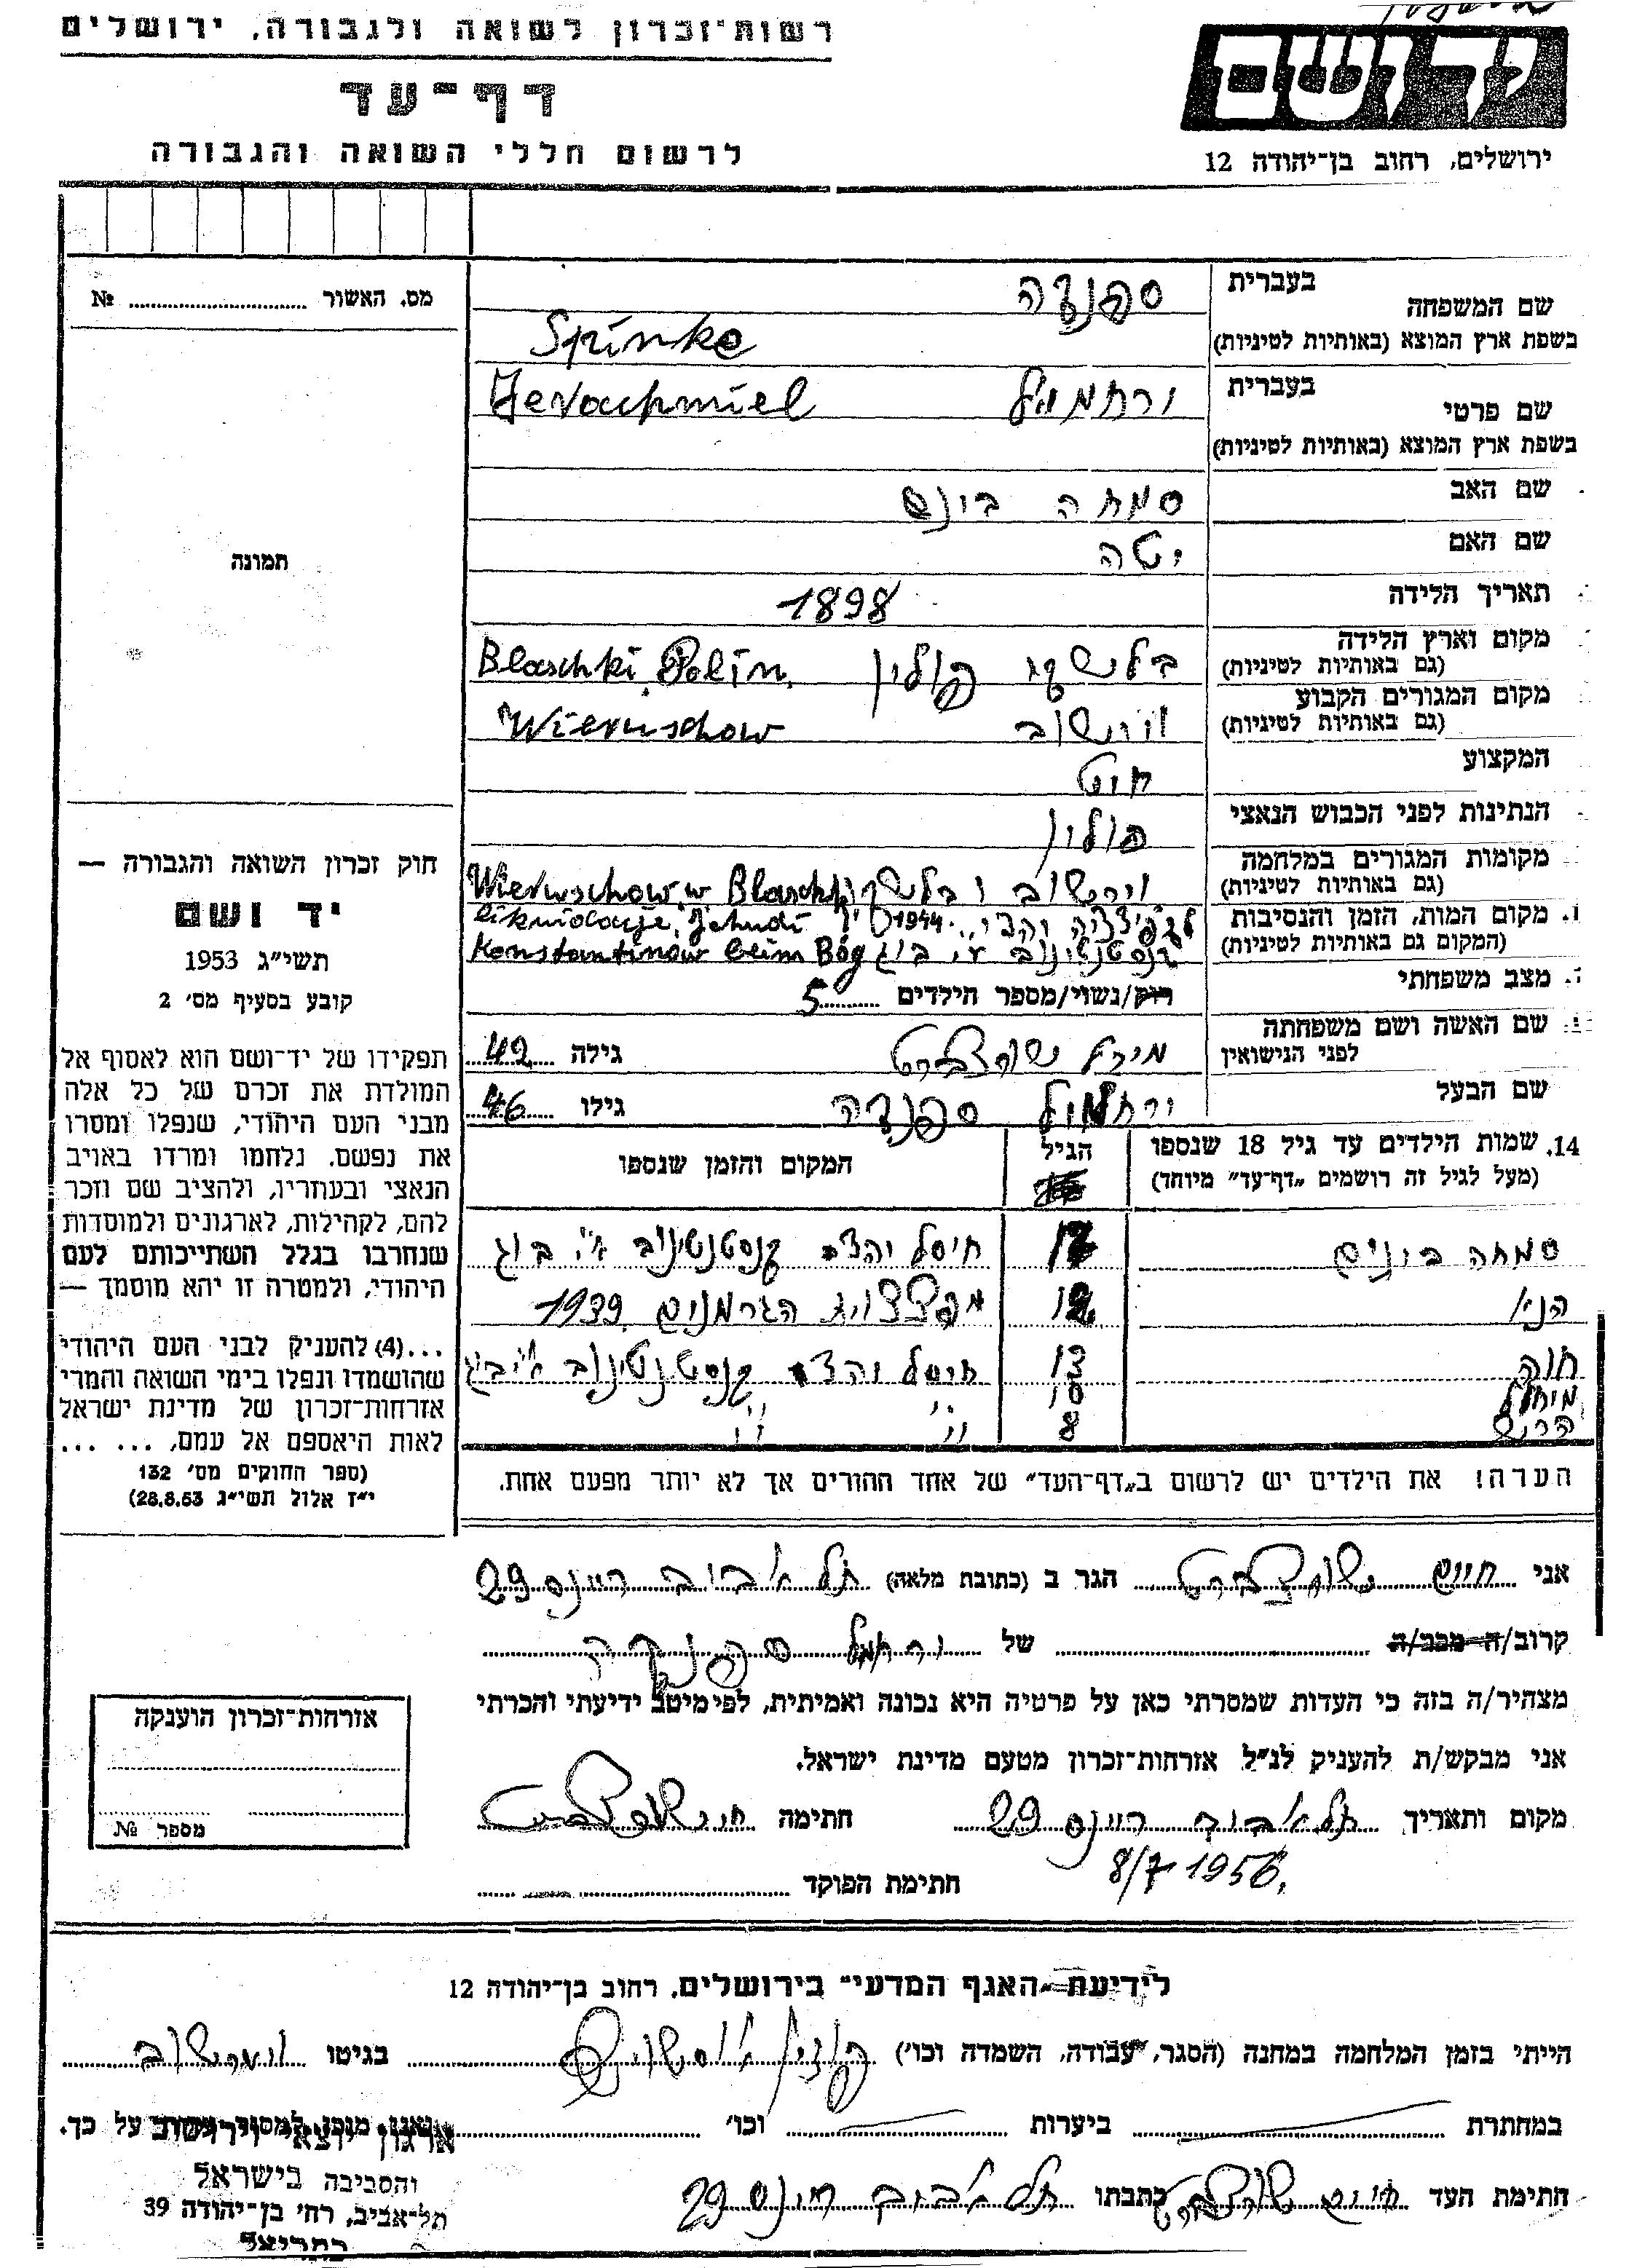 רשות־זכרון לשואה ולגבורה, ירושלים
דף־עד
לרשום חללי השואה והגבורה
יד ושם
ירושלים, רחוב בן־יהודה 12
מס. האשור № ............
תמונה
חוק זכרון השואה והגבורה —
יד ושם
תשי״ג 1953
קובע בסעיף מס׳ 2
תפקידו של יד־ושם הוא לאסוף אל
המולדת את זכרם של כל אלה
מבני העם היהודי, שנפלו ומסרו
את נפשם, נלחמו ומרדו באויב
הנאצי ובעוזריו, ולהציב שם וזכר
להם, לקהילות, לארגונים ולמוסדות
שנחרבו בגלל השתייכותם לעם
היהודי, ולמטרה זו יהא מוסמך —
...(4) להעניק לבני העם היהודי
שהושמדו ונפלו בימי השואה והמרי
אזרחות־זכרון של מדינת ישראל
לאות היאספם אל עמם. ... ...
(ספר החוקים מס׳ 132
י״ז אלול תשי״ג 28.8.53)
שם המשפחה בעברית
ספנזה
בשפת ארץ המוצא (באותיות לטיניות) Spinke
שם פרטי בעברית ירחמיאל Jerachmiel
בשפת ארץ המוצא (באותיות לטיניות)
שם האב שמחה בונם
שם האם יטה
תאריך הלידה 1898
מקום וארץ הלידה (גם באותיות לטיניות) בלשקי פולין Blaschki, Polin.
מקום המגורים הקבוע (גם באותיות לטיניות) וירשוב Wieruschow
המקצוע חיט
הנתינות לפני הכבוש הנאצי פולין
מקומות המגורים במלחמה (גם באותיות לטיניות) וירושוב ובלשקי Wieruschow w Blaschki
מקום המות, הזמן והנסיבות (המקום גם באותיות לטיניות) 1944
Konstantinow beim Bóg
מצב משפחתי רווק/נשוי/מספר הילדים 5
שם האשה ושם משפחתה לפני הנישואין מירל שורצברט גילה 42
שם הבעל ירחמיאל ספנזה גילו 46
14. שמות הילדים עד גיל 18 שנספו הגיל המקום והזמן שנספו
(מעל לגיל זה רושמים „דף־עד״ מיוחד)
שמחה בונים 17
12 הגרמנים 1939
חוה 13
10
8
הערה! את הילדים יש לרשום ב„דף־העד״ של אחד ההורים אך לא יותר מפעם אחת.
אני חיים שורצברט הגר ב (כתובת מלאה) תל אביב ריינס 29
קרוב/ה מכר/ה של
מצהיר/ה בזה כי העדות שמסרתי כאן על פרטיה היא נכונה ואמיתית, לפי מיטב ידיעתי והכרתי
אני מבקש/ת להעניק לנ״ל אזרחות־זכרון מטעם מדינת ישראל.
מקום ותאריך תל אביב ריינס 29 חתימה
8/7 1956.
חתימת הפוקד
אזרחות־זכרון הוענקה
מספר №
לידיעת „האגף המדעי״ בירושלים, רחוב בן־יהודה 12
הייתי בזמן המלחמה במחנה (הסגר, עבודה, השמדה וכו׳) בגיטו
במחתרת ביערות וכו׳ ואני מוכן למסור עדות על כך.
חתימת העד חיים שורצברט כתבתו תל אביב ריינס 29
ארגון יוצאי וירושוב
והסביבה בישראל
תל־אביב, רח׳ בן־יהודה 39